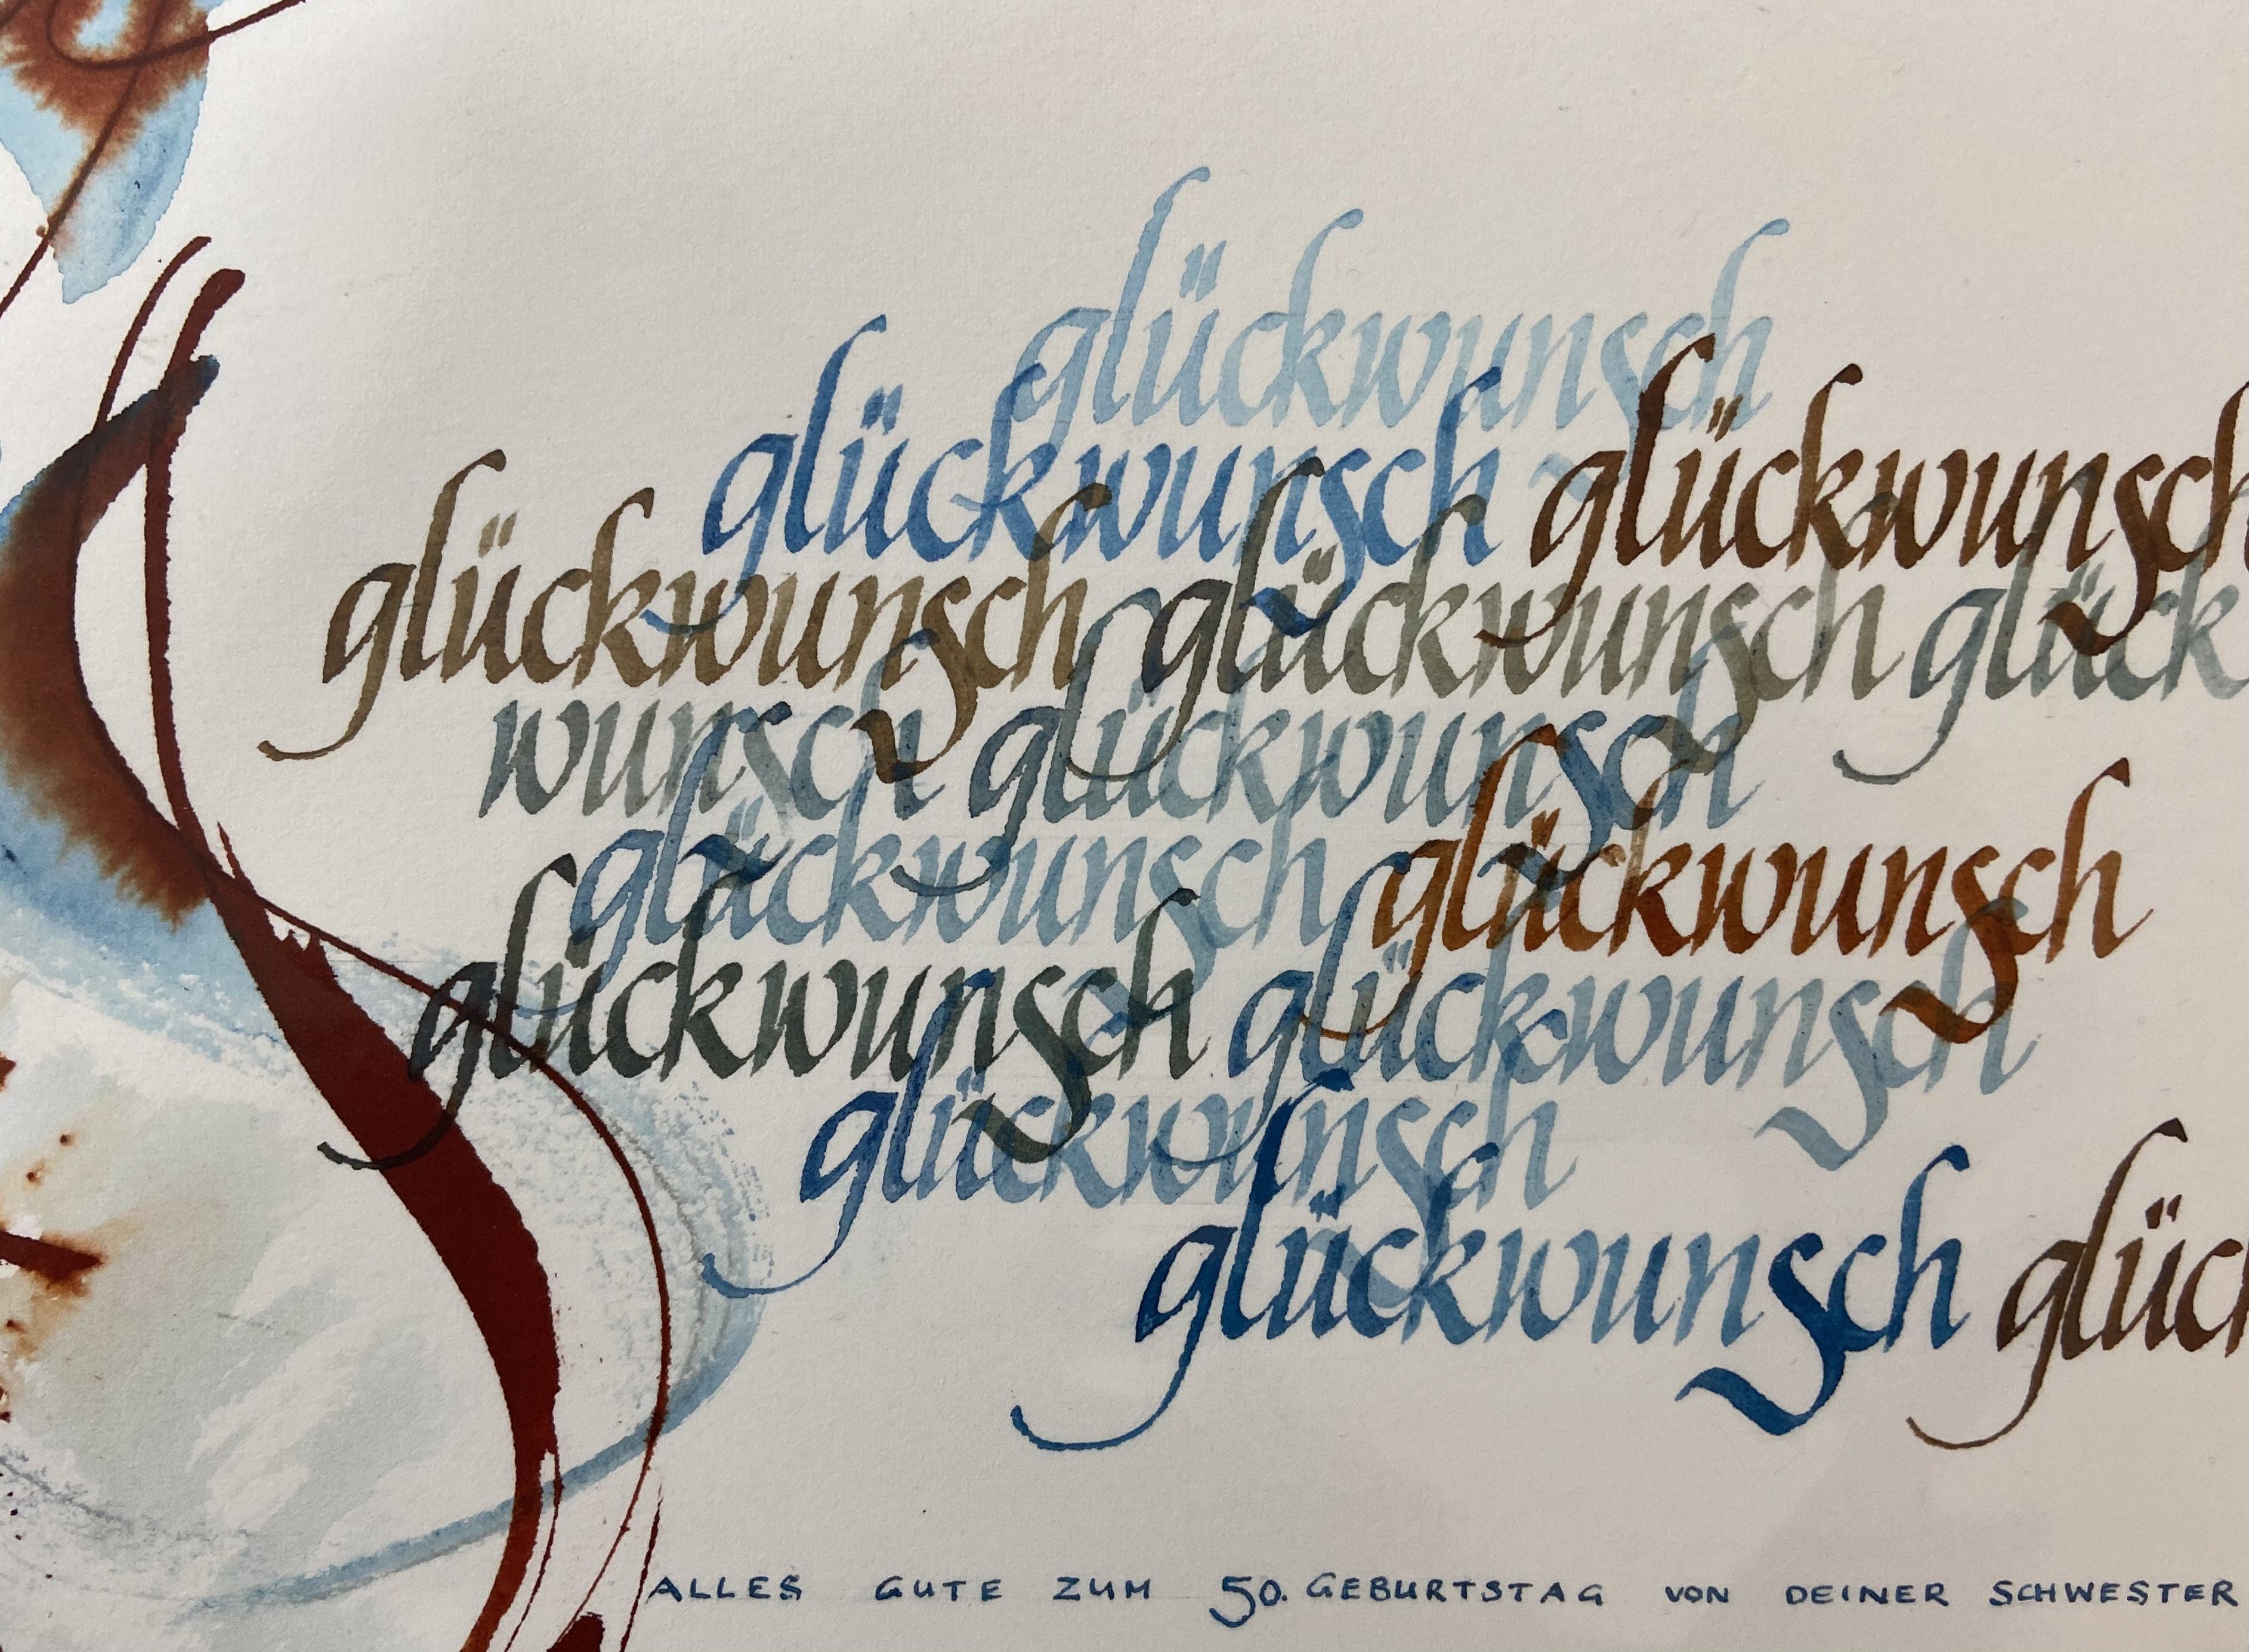 glückwunsch
glückwunsch glückwunsch
glückwunsch glückwunsch glück
wunsch glückwunsch
glückwunsch glückwunsch
glückwunsch glückwunsch
glückwunsch
glückwunsch glück
ALLES GUTE ZUM 50. GEBURTSTAG VON DEINER SCHWESTER